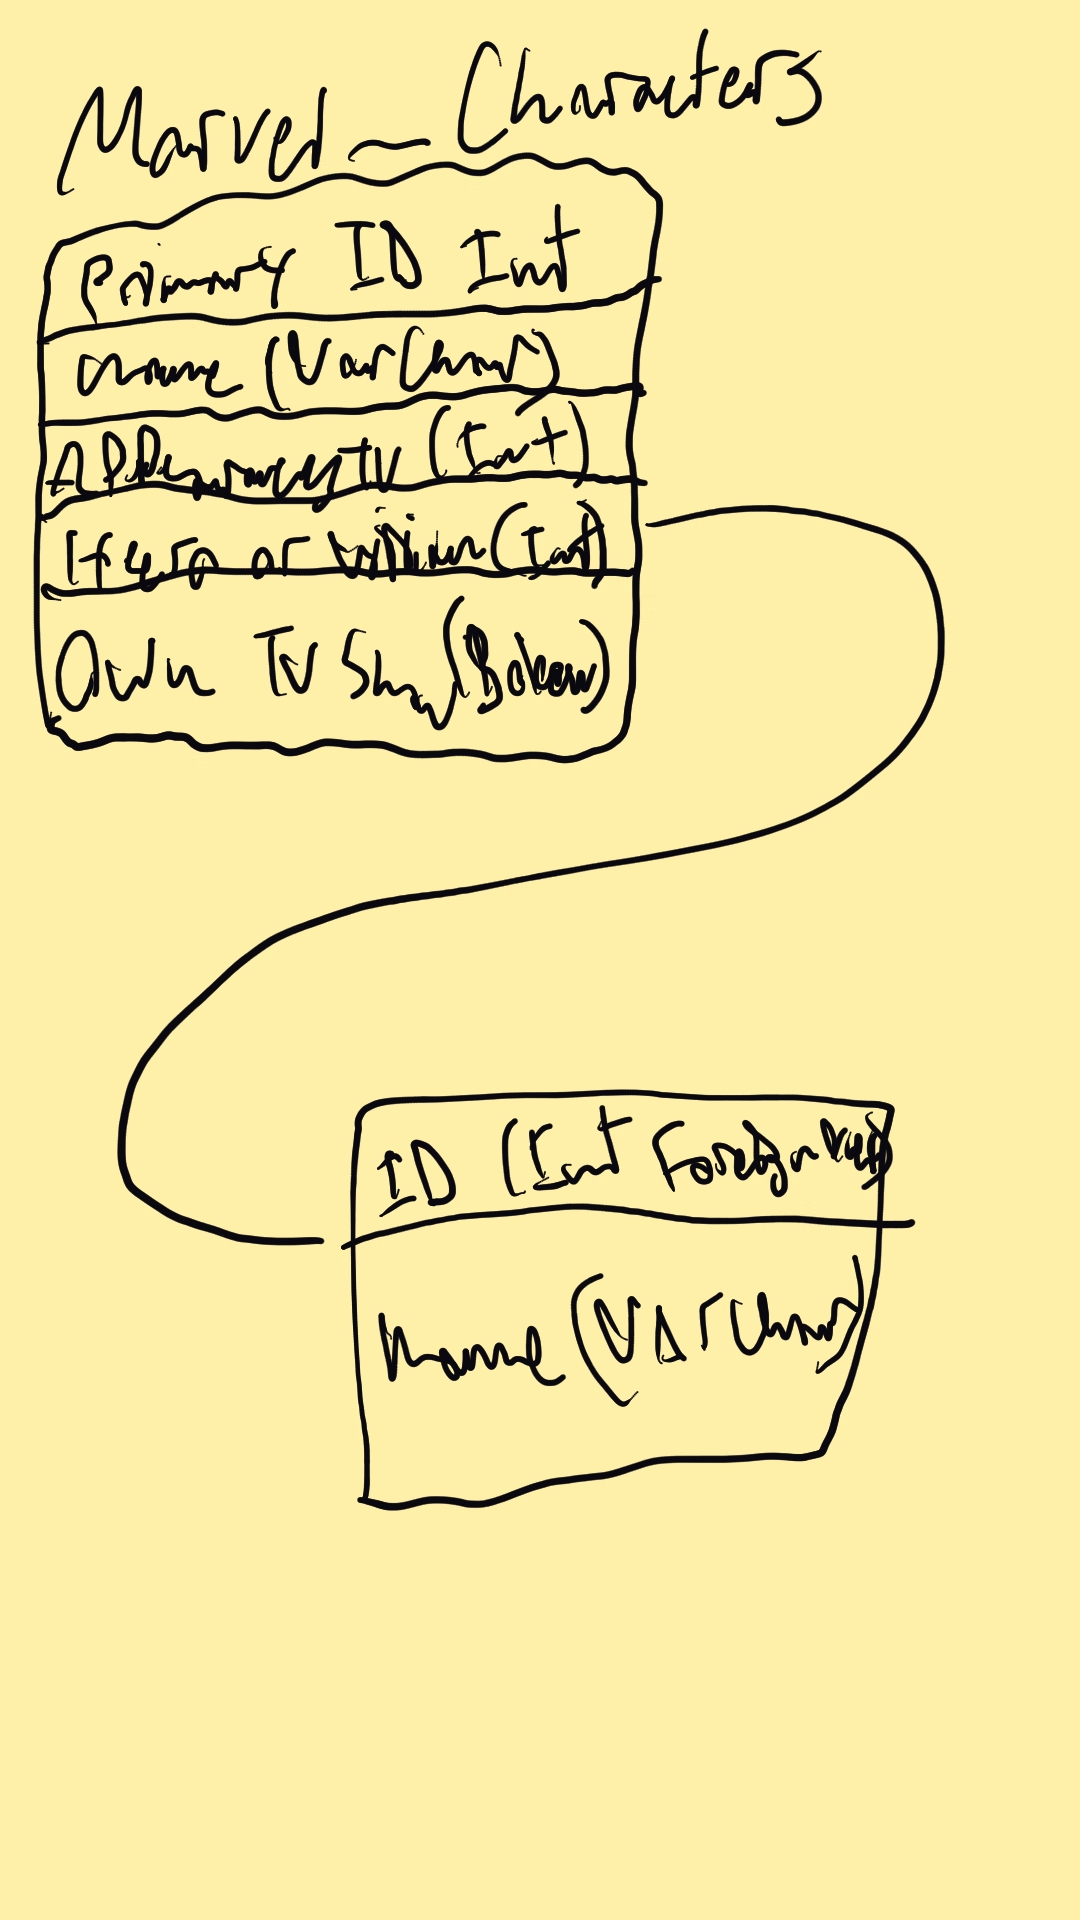 Marvel_Characters
Primary ID Int
name (VarChar)
TV (Int)
Hero or Villian (Int)
Own TV Show (Bolean)
ID (Int Foreign Key)
Name (VArChar)